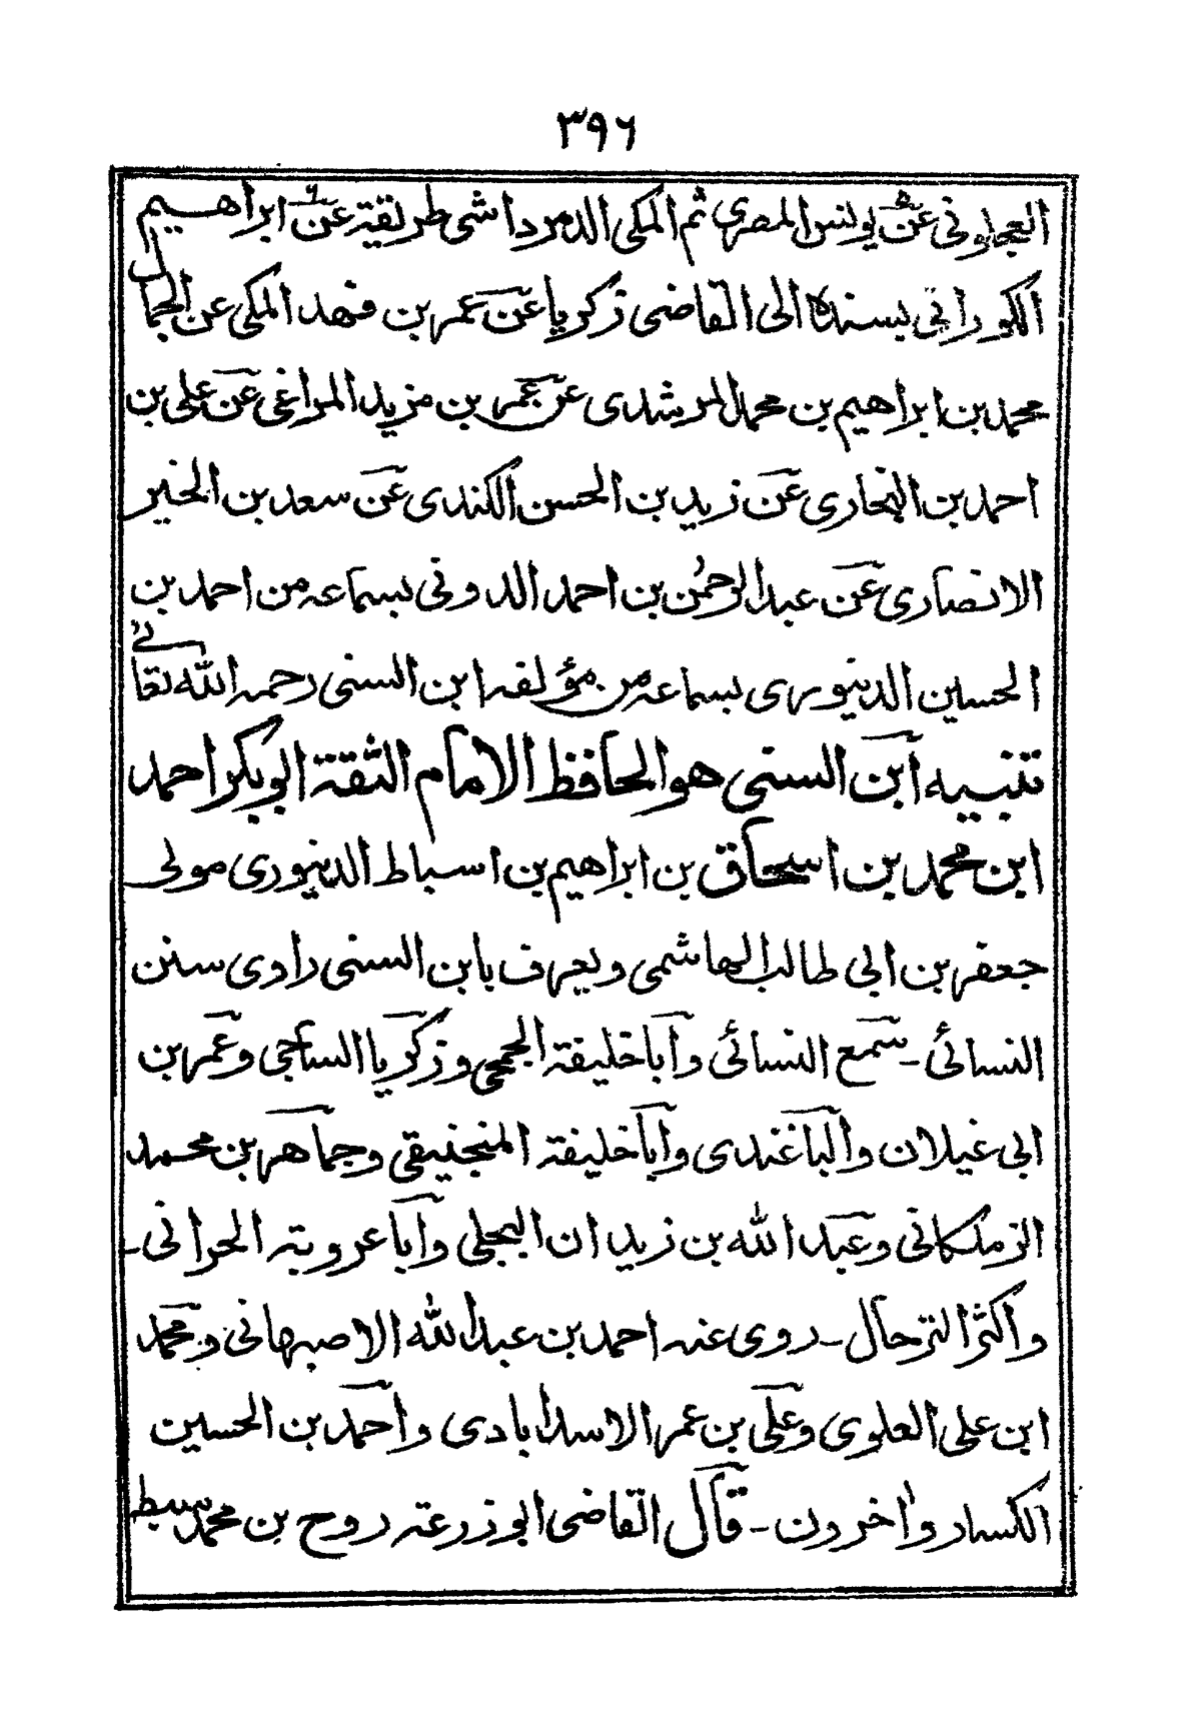 ٣٩٦
العجلونى عن يونس المصرى ثم المكى الدمرداشى طريقة عن ابراهيم
الكورانى بسنده الى القاضى زكريا عن عمر بن فهد المكى عن الجمال
محمد بن ابراهيم بن محمد المرشدى عن عمر بن مزيد المراغى عن على بن
احمد بن البخارى عن زيد بن الحسن الكندى عن سعد بن الخير
الانصارى عن عبد الرحمٰن بن احمد الدونى بسماعه من احمد بن
الحسين الدينورى بسماعه من مؤلفه ابن السنى رحمه الله تعالى
تنبيه ابن السنى هو الحافظ الامام الثقة ابو بكر احمد
ابن محمد بن اسحاق بن ابراهيم بن اسباط الدينورى مولى
جعفر بن ابى طالب الهاشمى ويعرف بابن السنى راوى سنن
النسائى ـ سمع النسائى وابا خليفة الجمحى وزكريا الساجى وعمر بن
ابى غيلان والباغندى وابا خليفة المنجنيقى وجماهر بن محمد
الزملكانى وعبد الله بن زيدان البجلى وابا عروبة الحرانى ـ
واكثر الترحال ـ روى عنه احمد بن عبد الله الاصبهانى ومحمد
ابن على العلوى وعلى بن عمر الاسدابادى واحمد بن الحسين
الكسار واٰخرون ـ قال القاضى ابو زرعة روح بن محمد سبط